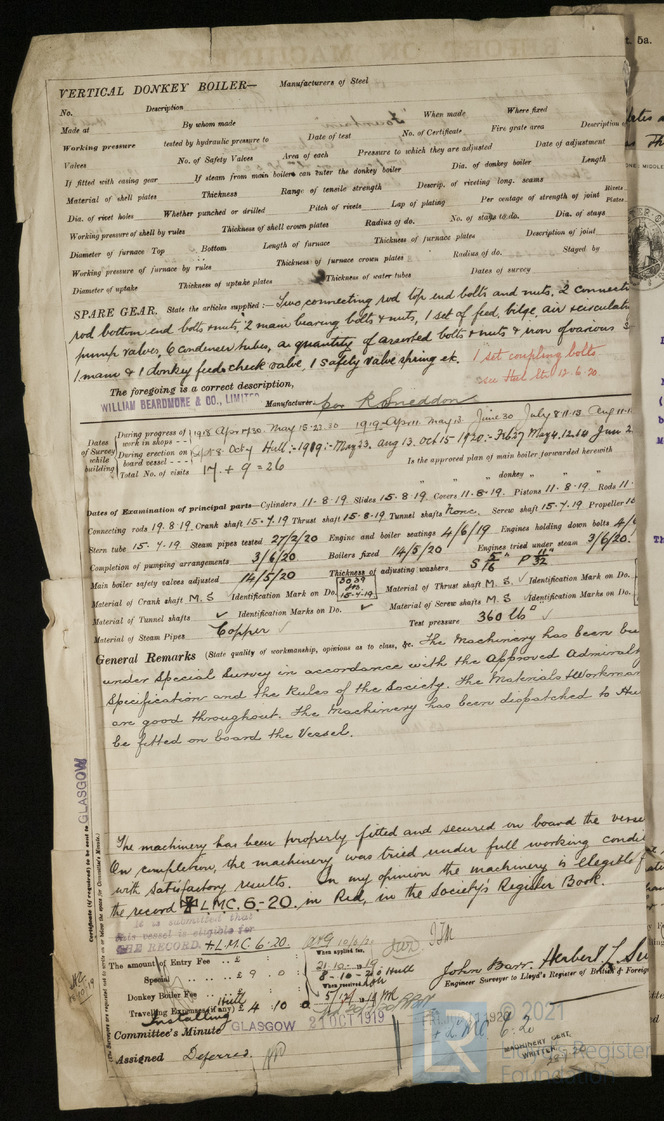 VERTICAL DONKEY BOILER— Manufacturers of Steel
No. Description
Made at By whom made When made Where fixed
Working pressure tested by hydraulic pressure to Date of test No. of Certificate Fire grate area Description o
Valves No. of Safety Valves Area of each Pressure to which they are adjusted Date of adjustment
If fitted with easing gear If steam from main boilers can enter the donkey boiler Dia. of donkey boiler Length
Material of shell plates Thickness Range of tensile strength Descrip. of riveting long. seams
Dia. of rivet holes Whether punched or drilled Pitch of rivets Lap of plating Per centage of strength of joint Rivets Plates
Working pressure of shell by rules Thickness of shell crown plates Radius of do. No. of stays to do. Dia. of stays
Diameter of furnace Top Bottom Length of furnace Thickness of furnace plates Description of joint
Working pressure of furnace by rules Thickness of furnace crown plates Radius of do. Stayed by
Diameter of uptake Thickness of uptake plates Thickness of water tubes Dates of survey
SPARE GEAR. State the articles supplied:— Two connecting rod top end bolts and nuts, 2 connecti
rod bottom end bolts & nuts, 2 main bearing bolts & nuts, 1 set of feed, bilge, air & circulati
pump valves, 6 condenser tubes, a quantity of assorted bolts & nuts & iron of various
1 main & 1 donkey feed check valve, 1 safety valve spring etc. 1 set coupling bolts
see Hul lr. 12.6.20.
The foregoing is a correct description,
WILLIAM BEARDMORE & CO., LIMITED Manufacturer per R Sneddon
Dates of Survey while building
During progress of work in shops - - 1918 Apr 30 May 15-23-30 1919- Apr 11 May 13 June 30 July 8.11.15 Aug 11-1
During erection on board vessel - - - Sept 8. Oct 4 Hull:- 1919:- May 23. Aug 13. Oct 15- 1920:- Feb 27 May 4.12.14 Jun 2
Total No. of visits 17 + 9 = 26 Is the approved plan of main boiler forwarded herewith
" " " donkey " " "
Dates of Examination of principal parts—Cylinders 11-8-19 Slides 15.8.19 Covers 11-8-19. Pistons 11-8-19 Rods 11-
Connecting rods 19.8.19 Crank shaft 15.7.19 Thrust shaft 15-8-19 Tunnel shafts None. Screw shaft 15.7.19 Propeller
Stern tube 15.7.19 Steam pipes tested 27/2/20 Engine and boiler seatings 4/6/19 Engines holding down bolts 4/6
Completion of pumping arrangements 3/6/20 Boilers fixed 14/5/20 Engines tried under steam 3/6/20.
Main boiler safety valves adjusted 14/5/20 Thickness of adjusting washers S 5/16" P 11/32"
Material of Crank shaft M.S Identification Mark on Do. 3039 15-7-19 Material of Thrust shaft M.S. Identification Mark on Do.
Material of Tunnel shafts ✓ Identification Marks on Do. ✓ Material of Screw shafts M.S Identification Marks on Do.
Material of Steam Pipes Copper ✓ Test pressure 360 lb□ ✓
General Remarks (State quality of workmanship, opinions as to class, &c. The Machinery has been bu
under Special Survey in accordance with the Approved Admiralty
Specification and the Rules of the Society. The Materials & Workman
are good throughout. The Machinery has been dispatched to Hu
be fitted on board the Vessel.
The machinery has been properly fitted and secured on board the vesse
On completion, the machinery was tried under full working condit
with satisfactory results. In my opinion the machinery is elegible f
the record ✠ LMC. 6-20. in Red, in the Society's Register Book.
It is submitted that
this vessel is eligible for
THE RECORD. + LMC 6-20.
The amount of Entry Fee .. £ : : When applied for,
Special .. £ 9 : 0 : 21-10-1919
8-10-20 Hull
Donkey Boiler Fee .. £ : : When received,
Travelling Expenses (if any) £ 4 : 10 : 0
Hull
Installing
John Barr. Herbert
Engineer Surveyor to Lloyd's Register of British & Foreign
Committee's Minute GLASGOW 21 OCT 1919
+ LMC 6.20
Assigned Deferred.
MACHINERY CERT. WRITTEN
GLASGOW
Certificate (if required) to be sent to
© 2021
LR
Lloyd's Register
Foundation